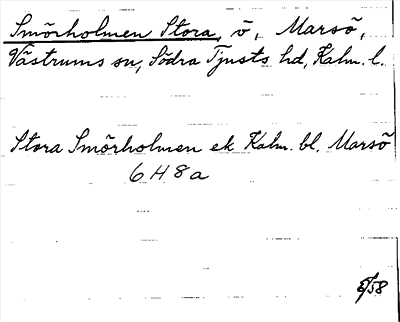 Smörholmen Stora, ö, Marsö,
Västrums sn, Södra Tjusts hd, Kalm. l.
Stora Smörholmen ek Kalm. bl. Marsö
6 H 8 a